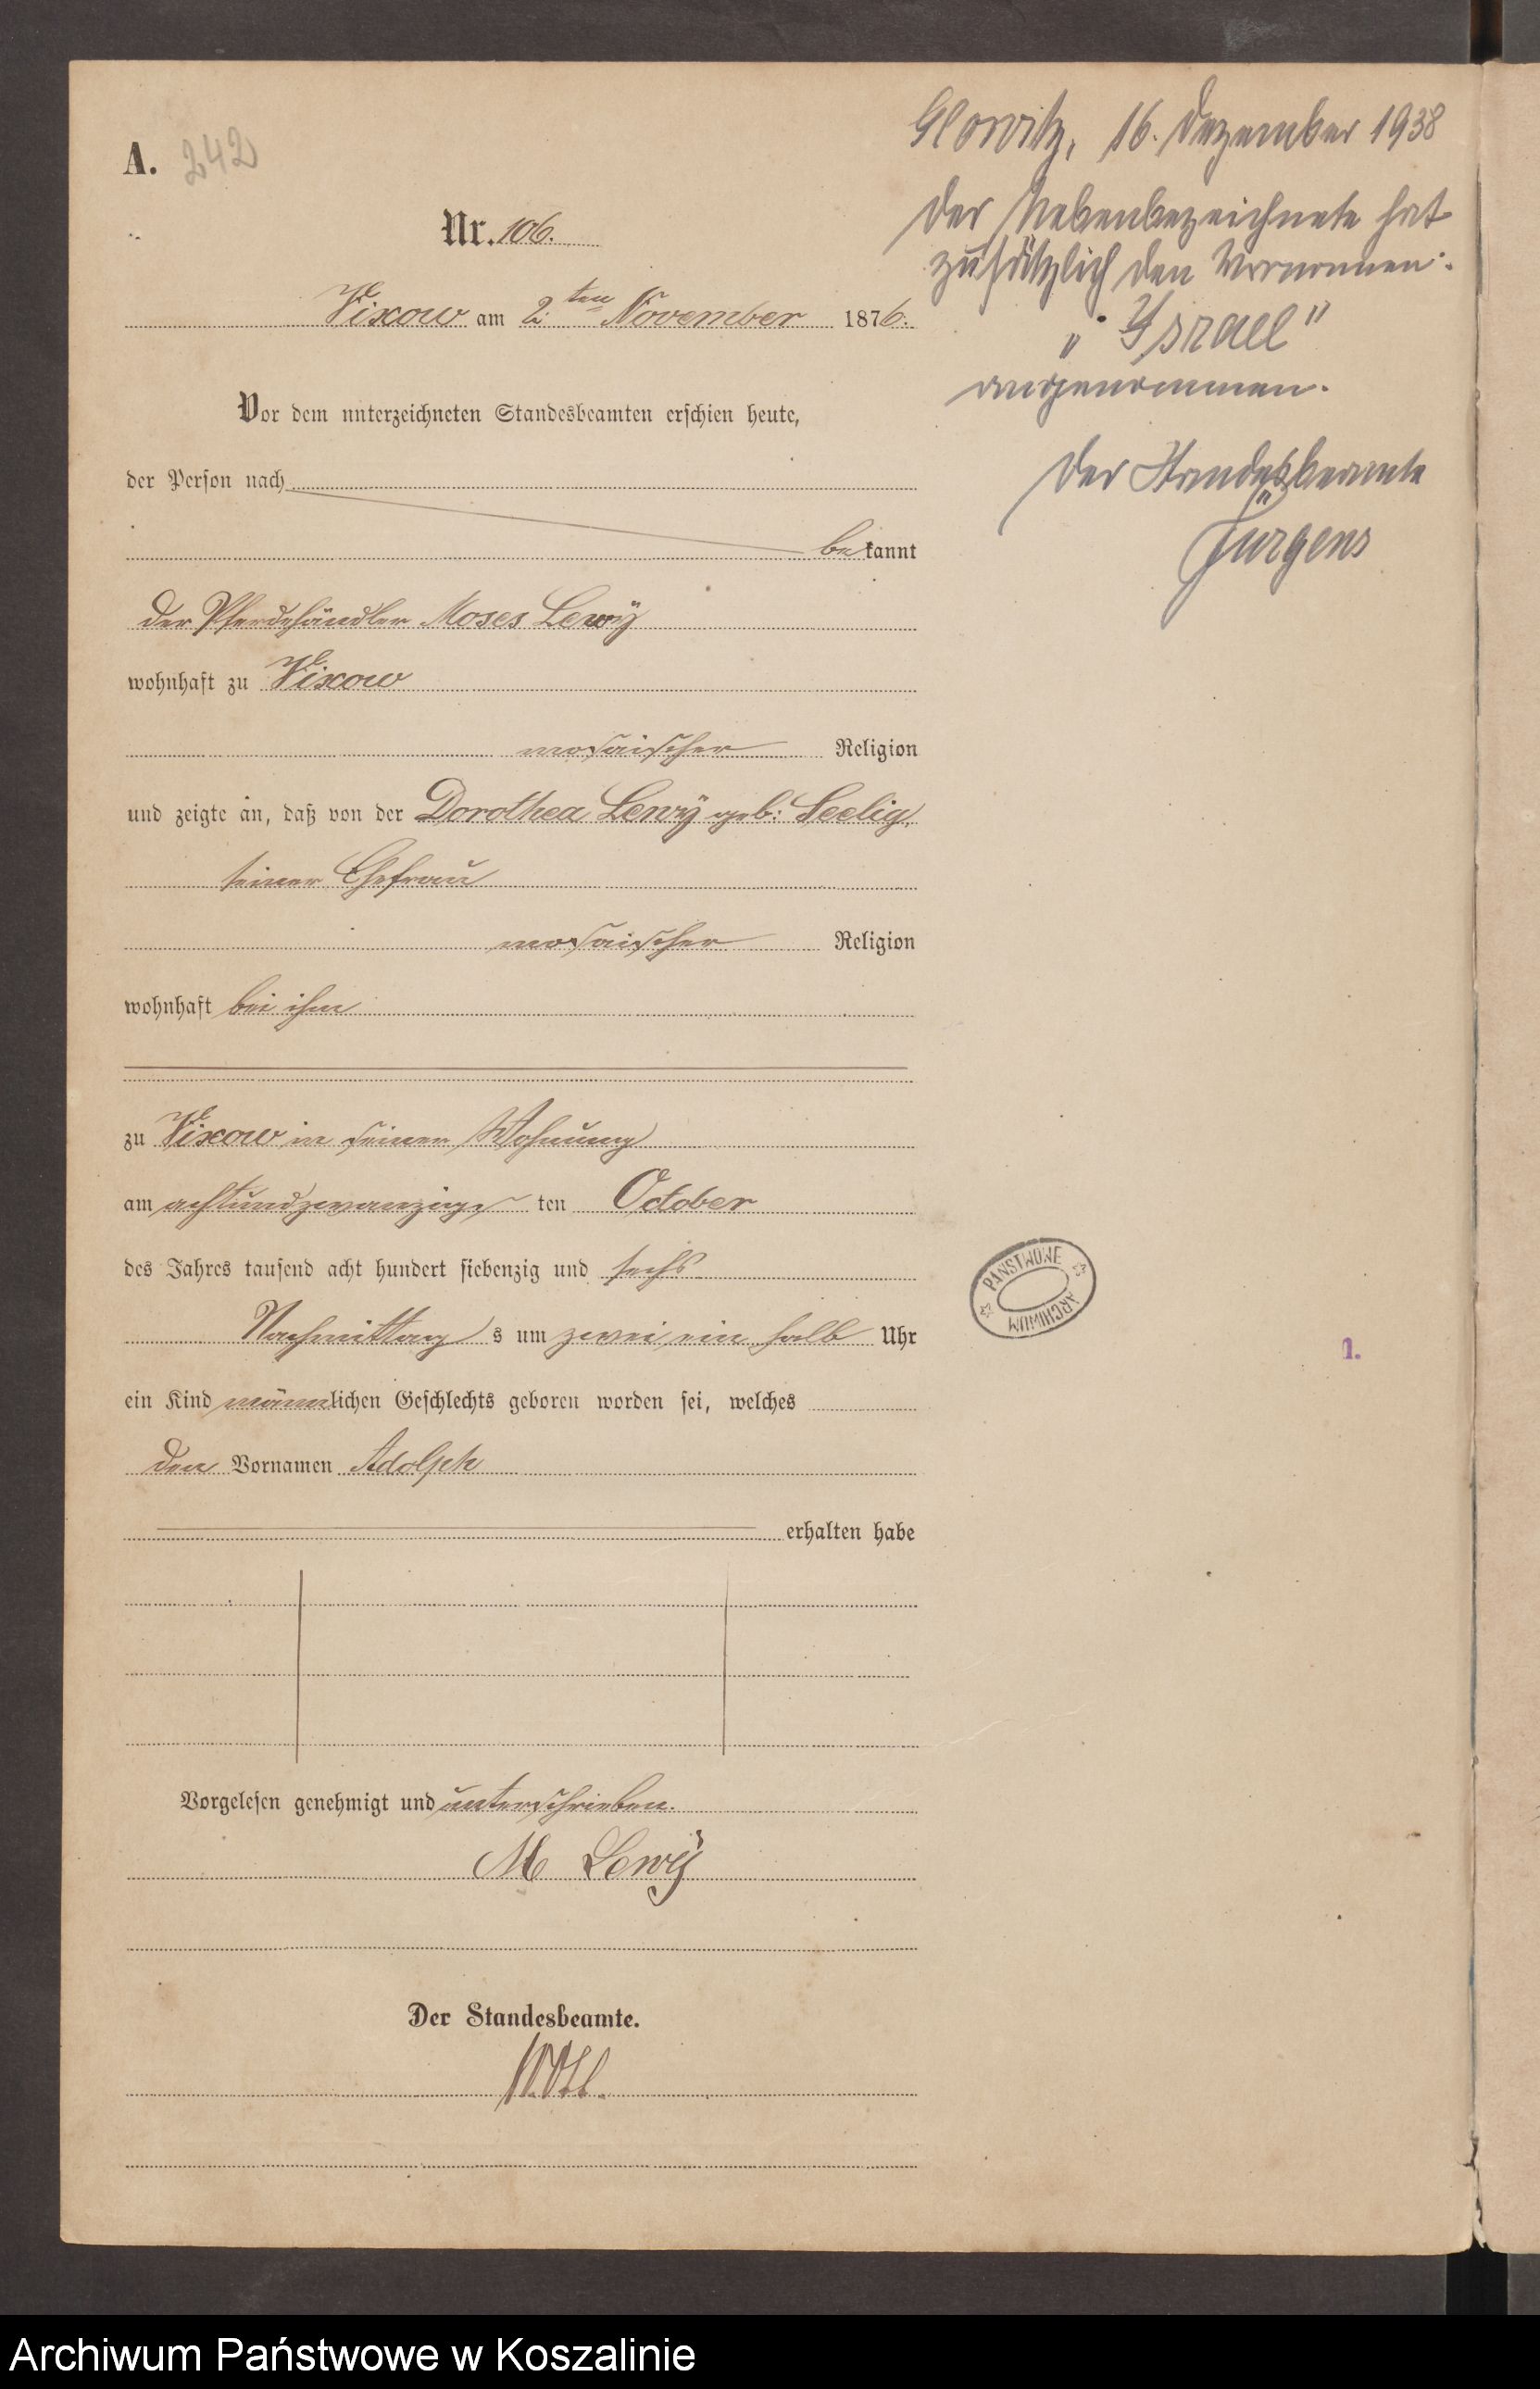 A. 242
Nr. 106.
Vixow am 2ten November 1876.
Vor dem unterzeichneten Standesbeamten erschien heute,
der Person nach
bekannt
der Pferdehändler Moses Lewÿ
wohnhaft zu Vixow
mosaischer Religion
und zeigte an, daß von der Dorothea Lewÿ geb: Seelig,
seiner Ehefrau
mosaischer Religion
wohnhaft bei ihm
zu Vixow in seiner Wohnung
am achtundzwanzigs ten October
des Jahres tausend acht hundert siebenzig und sechs
Nachmittag s um zwei ein halb Uhr
ein Kind männlichen Geschlechts geboren worden sei, welches
den Vornamen Adolph
erhalten habe
Vorgelesen genehmigt und unterschrieben.
M Lewÿ
Der Standesbeamte.
Glowitz, 16. Dezember 1938
Der Nebenbezeichnete hat
zusätzlich den Vornamen:
„Israel"
angenommen.
Der Standesbeamte
Jürgens
PAŃSTWOWE
ARCHIWUM
1.
Archiwum Państwowe w Koszalinie